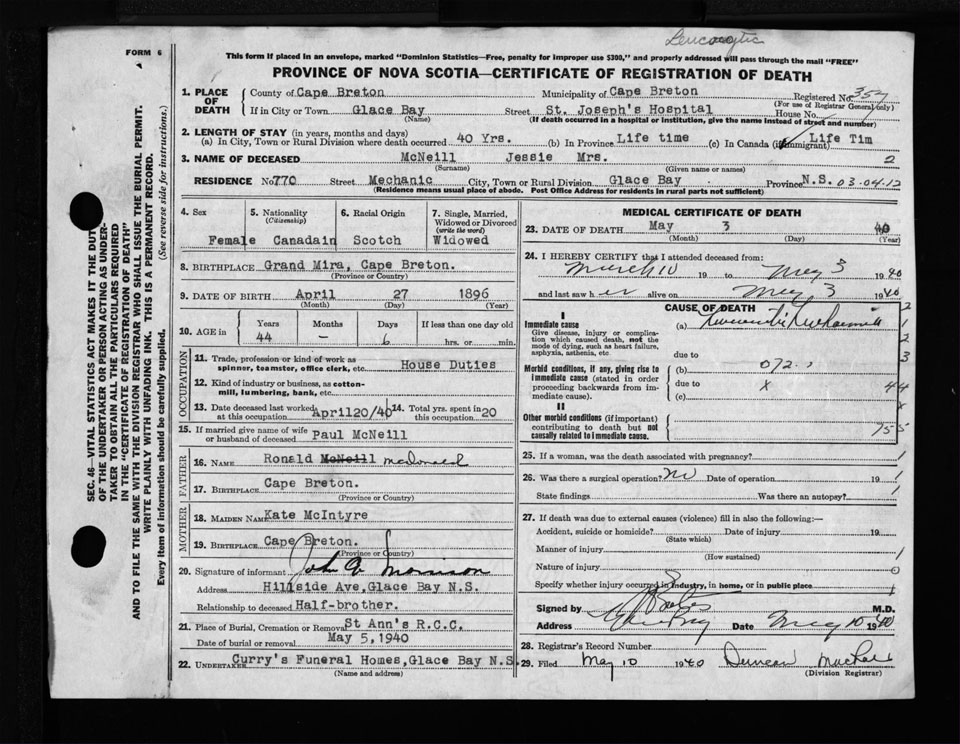 FORM 6
This form if placed in an envelope, marked "Dominion Statistics—Free, penalty for improper use $300," and properly addressed will pass through the mail "FREE"
PROVINCE OF NOVA SCOTIA—CERTIFICATE OF REGISTRATION OF DEATH
SEC. 46—VITAL STATISTICS ACT MAKES IT THE DUTY
OF THE UNDERTAKER OR PERSON ACTING AS UNDER-
TAKER TO OBTAIN ALL THE PARTICULARS REQUIRED
IN THE "CERTIFICATE OF REGISTRATION OF DEATH"
AND TO FILE THE SAME WITH THE DIVISION REGISTRAR WHO SHALL ISSUE THE BURIAL PERMIT.
WRITE PLAINLY WITH UNFADING INK. THIS IS A PERMANENT RECORD.
Every item of information should be carefully supplied. (See reverse side for instructions.)
1. PLACE OF DEATH County of Cape Breton Municipality of Cape Breton Registered No. 357
(For use of Registrar General only)
If in City or Town Glace Bay Street St. Joseph's Hospital House No.
(Name) (If death occurred in a hospital or institution, give the name instead of street and number)
2. LENGTH OF STAY (in years, months and days)
(a) In City, Town or Rural Division where death occurred 40 Yrs. (b) In Province Life time (c) In Canada (if immigrant) Life Tim
3. NAME OF DECEASED McNeill Jessie Mrs. 2
(Surname) (Given name or names)
RESIDENCE No. 770 Street Mechanic City, Town or Rural Division Glace Bay Province N.S. 03-04-12
(Residence means usual place of abode. Post Office Address for residents in rural parts not sufficient)
4. Sex Female
5. Nationality (Citizenship) Canadain
6. Racial Origin Scotch
7. Single, Married, Widowed or Divorced (write the word) Widowed
8. BIRTHPLACE Grand Mira, Cape Breton.
(Province or Country)
9. DATE OF BIRTH April 27 1896
(Month) (Day) (Year)
10. AGE in Years Months Days If less than one day old
44 – 6 hrs. or min.
OCCUPATION
11. Trade, profession or kind of work as spinner, teamster, office clerk, etc. House Duties
12. Kind of industry or business, as cotton-mill, lumbering, bank, etc.
13. Date deceased last worked at this occupation April 20/40 14. Total yrs. spent in this occupation 20
15. If married give name of wife or husband of deceased Paul McNeill
FATHER
16. NAME Ronald McNeill McDonald
17. BIRTHPLACE Cape Breton.
(Province or Country)
MOTHER
18. MAIDEN NAME Kate McIntyre
19. BIRTHPLACE Cape Breton.
(Province or Country)
20. Signature of informant John Morrison
Address Hillside Ave, Glace Bay N.S.
Relationship to deceased Half-brother.
21. Place of Burial, Cremation or Removal St Ann's R.C.C.
Date of burial or removal May 5, 1940
22. UNDERTAKER Curry's Funeral Homes, Glace Bay N.S.
(Name and address)
MEDICAL CERTIFICATE OF DEATH
23. DATE OF DEATH May 3 40
(Month) (Day) (Year)
24. I HEREBY CERTIFY that I attended deceased from:
March 10 19 to May 3 1940
and last saw her alive on May 3 1940
CAUSE OF DEATH
I
Immediate cause (a)
Give disease, injury or complication which caused death, not the mode of dying, such as heart failure, asphyxia, asthenia, etc.
due to
Morbid conditions, if any, giving rise to immediate cause (stated in order proceeding backwards from immediate cause). (b) 072
due to x 44
(c)
II
Other morbid conditions (if important) contributing to death but not causally related to immediate cause. 75
25. If a woman, was the death associated with pregnancy?
26. Was there a surgical operation? No Date of operation 19
State findings Was there an autopsy?
27. If death was due to external causes (violence) fill in also the following:—
Accident, suicide or homicide? Date of injury 19
(State which)
Manner of injury
(How sustained)
Nature of injury
Specify whether injury occurred in industry, in home, or in public place
Signed by M.D.
Address Glace Bay Date May 10 1940
28. Registrar's Record Number
29. Filed May 10 1940 Duncan
(Division Registrar)